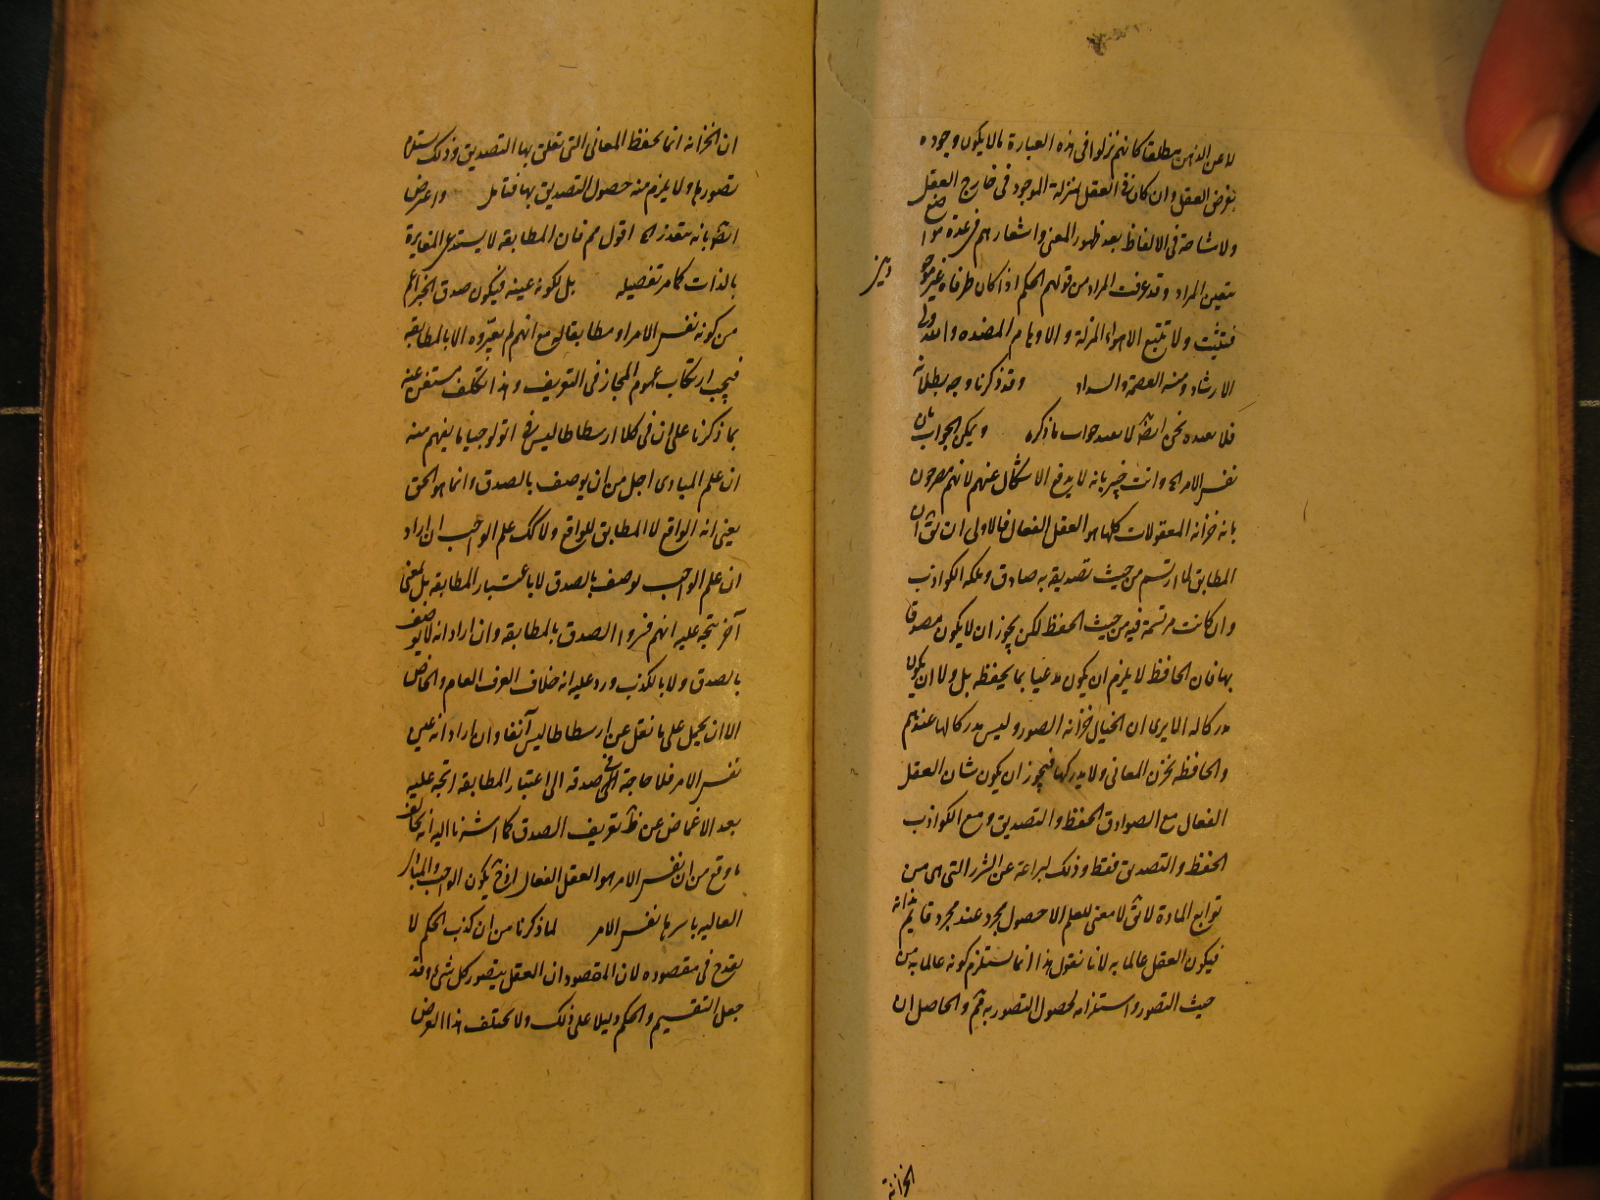 له عن الذهن مطلقا كانهم نزلوا فى هذه العبارة ما لا يكون وجوده
بفرض العقل وان كان فى العقل بمنزلة الموجود فى خارج العقل
ولا مشاحة فى الالفاظ بعد ظهور المعنى واشعارهم فى عدة مواضع
بتعين المراد وقد عرفت المراد من قولهم الحكم اذا كان طرفاه غير موجودين
فتثبت ولا تتبع الاهواء المزلة والاوهام المضلة والله ولى
الارشاد ومنه العصمة والسداد وقد ذكرنا وجه بطلانه
فلا نعيده نحن ايضا لا نعيد جواب ما ذكره ويمكن الجواب بان
نفس الامر الخ وانت خبير بانه لا يدفع الاشكال عنهم لانهم يصرحون
بانه خزانه المعقولات كلها هو العقل الفعال فالاولى ان يق ان
المطابق لما ارتسم من حيث تصديقه به صادق وملكه الكواذب
وان كانت مرتسمة فيه من حيث الحفظ لكن يجوز ان لا يكون مصدقا
بها فان الحافظ لا يلزم ان يكون مذعنا بما يحفظه بل ولا ان يكون
مدركا له الا يرى ان الخيال خزانه الصور وليس مدركا لها عندهم
والحافظه تخزن المعانى ولا يدركها فيجوز ان يكون شان العقل
الفعال مع الصوادق الحفظ والتصديق ومع الكواذب
الحفظ والتصديق فقط وذلك لبراءته عن الشرر التى هى من
توابع المادة لا يق لا معنى للعلم الا حصول مجرد عند مجرد قايم بذاته
فيكون العقل عالما به لانا نقول هذا انما يستلزم كونه عالما به من
حيث التصور واستلزامه لحصول التصور به ثم والحاصل ان
الخزانة
ان الخزانه انما يحفظ المعانى التى تعلق بها التصديق وذلك يستلزم
تصورها ولا يلزم منه حصول التصديق بها فتامل واعترض
ايضا بانه متعذر الخ اقول مم فان المطابقه لا يستدعى المغايرة
بالذات كما مر تفصيله بل لكونه عينه فيكون صدق الخبر اعم
من كونه نفس الامر او مطابقا له مع انهم لم يفسروه الا بالمطابقه
فيجب ارتكاب عموم المجاز فى التعريف وهذا تكلف مستغن عنه
بما ذكرنا على ان فى كلام ارسطاطاليس فى اثولوجيا ما يفهم منه
ان علم المبادى اجل من ان يوصف بالصدق وانما هو الحق
يعنى انه الواقع لا المطابق للواقع ولا كك علم الواجب ان اراد
ان علم الواجب يوصف بالصدق لا باعتبار المطابقه بل بمعنى
آخر يتجه عليه انهم فسروا الصدق بالمطابقه وان اراد انه لا يوصف
بالصدق ولا بالكذب ورد عليه انه خلاف العرف العام والخاص
الا ان يحمل على ما نقل عن ارسطاطاليس آنفا وان اراد انه عين
نفس الامر فلا حاجة فى صدقه الى اعتبار المطابقه اتجه عليه
بعد الاغماض عن ظ تعريف الصدق كما اشرنا اليه انه يخالف
ما وقع من ان نفس الامر هو العقل الفعال اذ ح يكون الواجب والمبادى
العاليه باسرها نفس الامر لما ذكرنا من ان كذب الحكم لا
يقدح فى مقصوده لان المقصود ان العقل يتصور كل شئ وقد
جعل التقسيم والحكم دليلا على ذلك ولا يختلف هذا الغرض